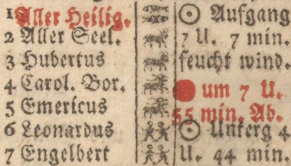 1 Aller Heilig.
2 Aller Seel.
3 Hubertus
4 Carol. Bor.
5 Emericus
6 Leonardus
7 Engelbert
☉ Aufgang
7 U. 7 min.
feucht wind.
um 7 U.
55 min. Ab.
☉ Unterg 4
U. 44 min.